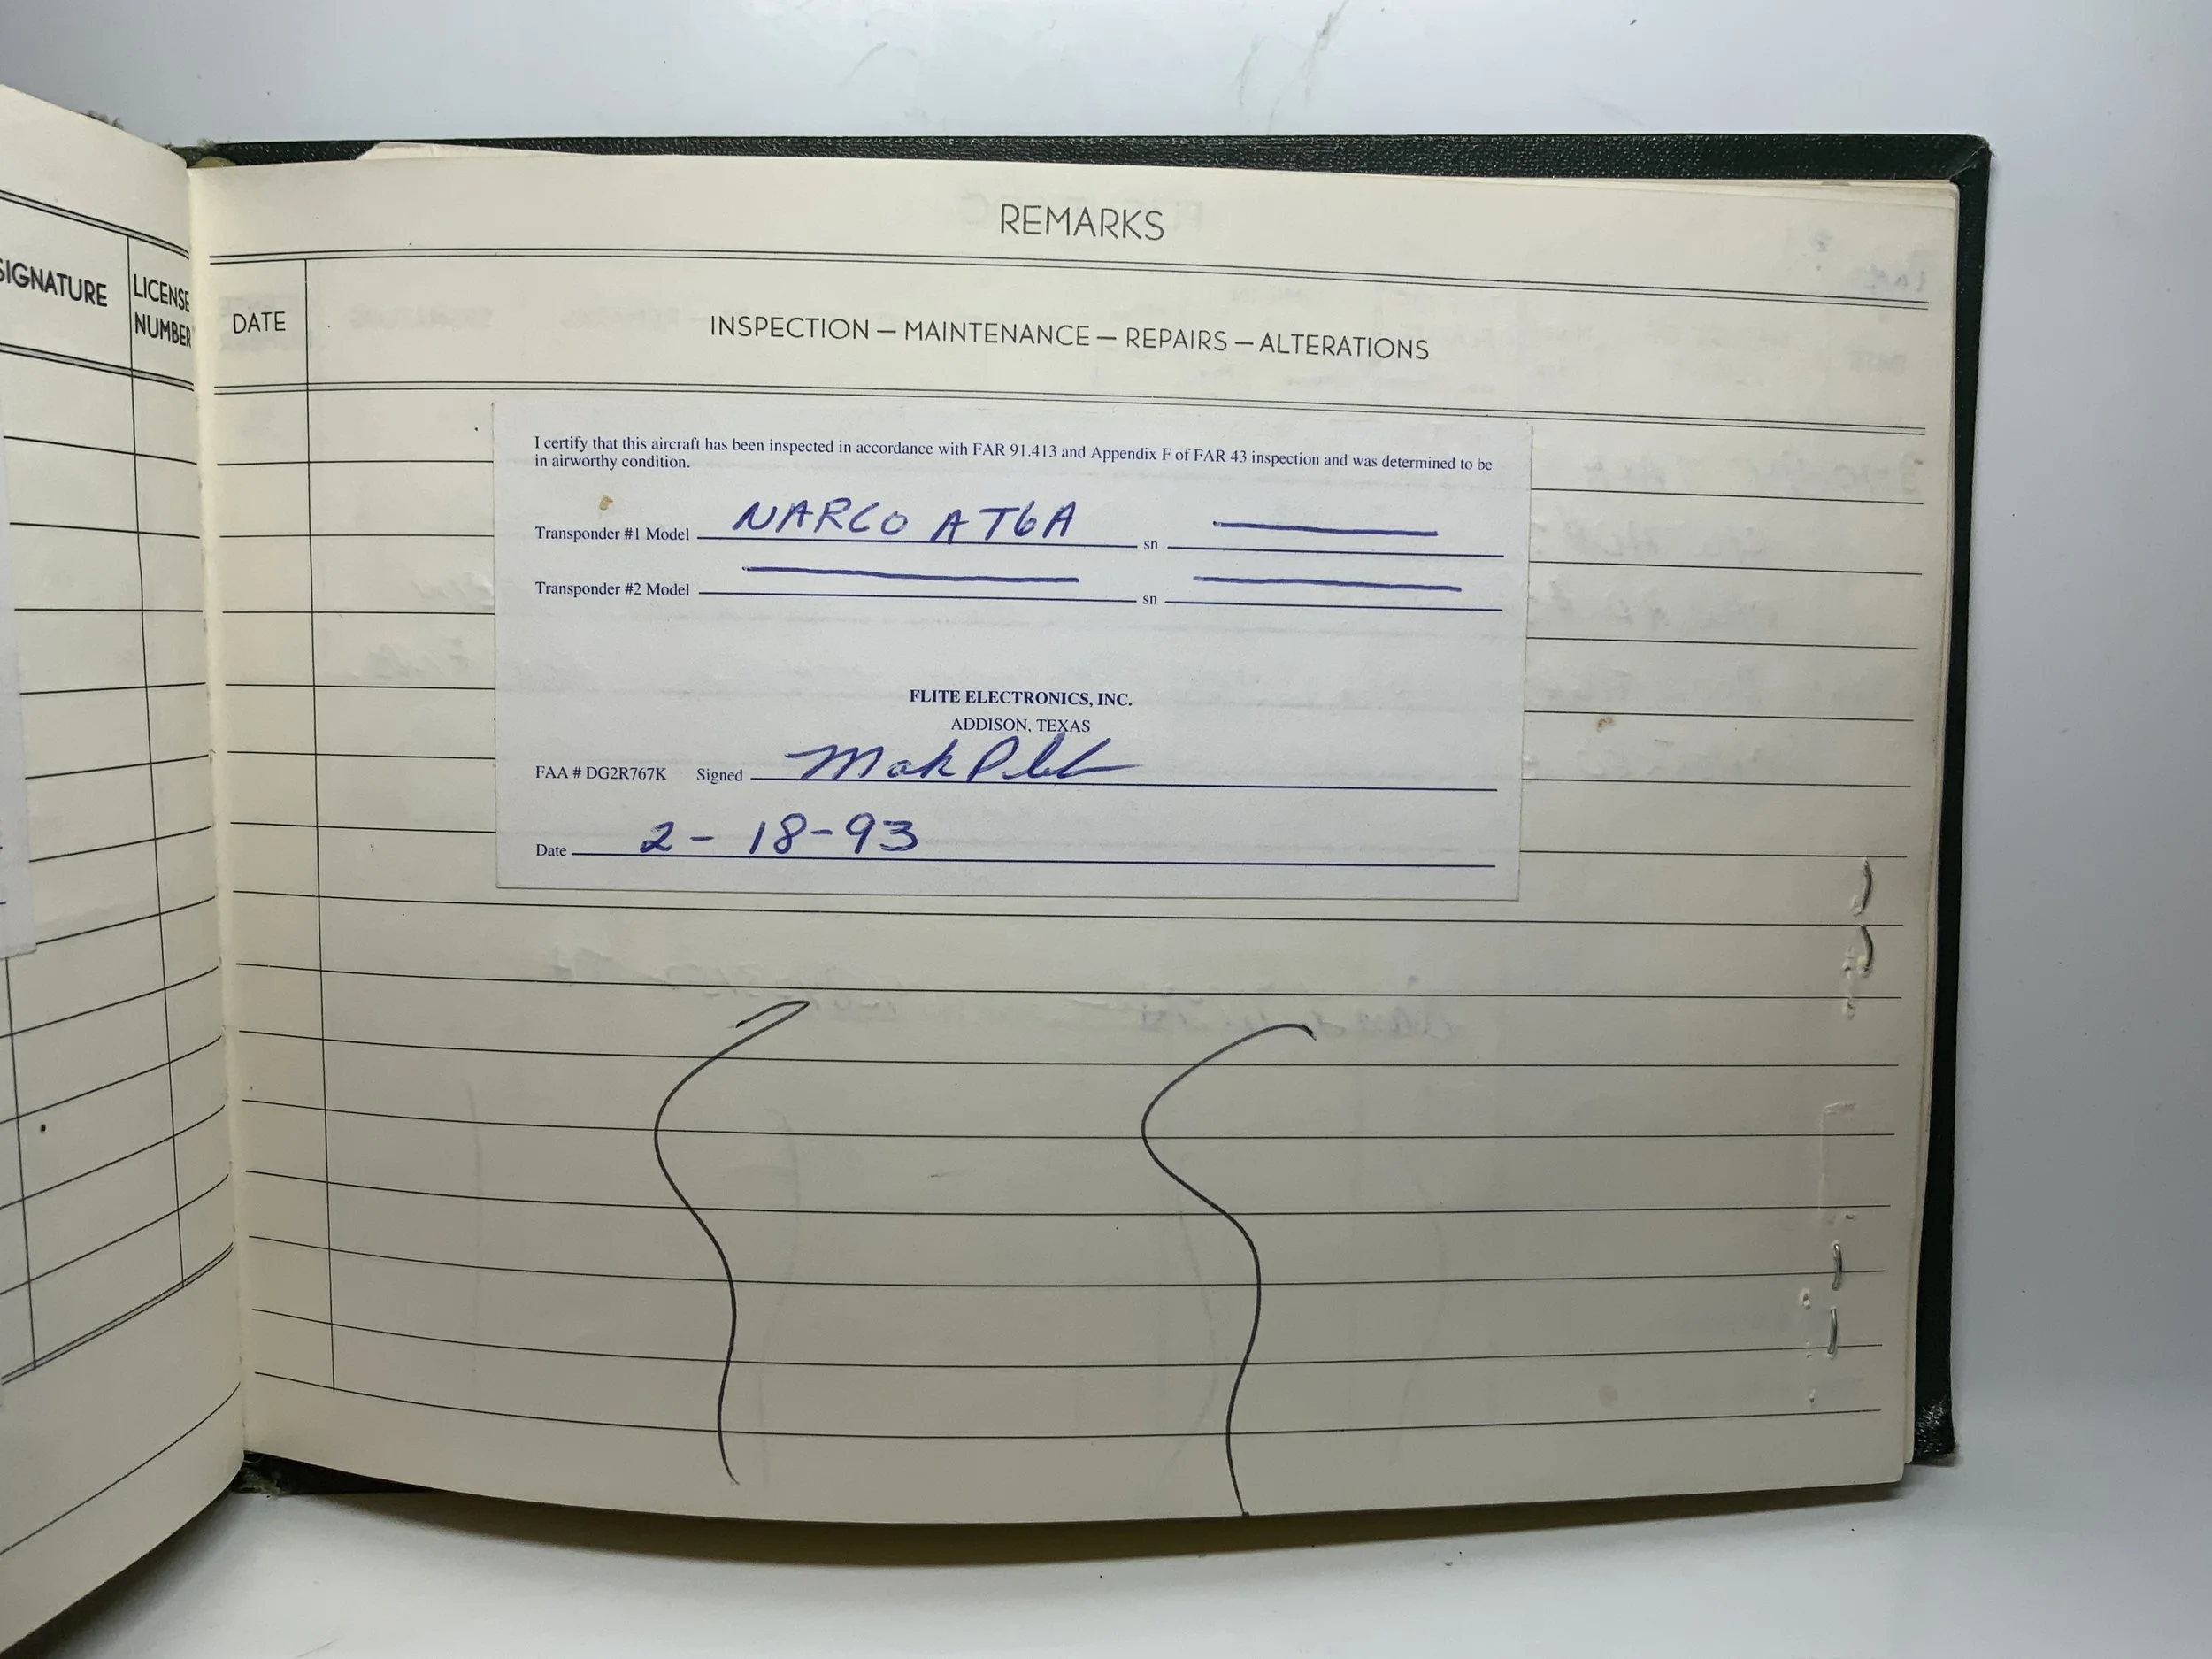 SIGNATURE
LICENSE
NUMBER
REMARKS
DATE
INSPECTION — MAINTENANCE — REPAIRS — ALTERATIONS
I certify that this aircraft has been inspected in accordance with FAR 91.413 and Appendix F of FAR 43 inspection and was determined to be
in airworthy condition.
Transponder #1 Model NARCO AT6A sn
Transponder #2 Model sn
FLITE ELECTRONICS, INC.
ADDISON, TEXAS
FAA # DG2R767K Signed
Date 2-18-93